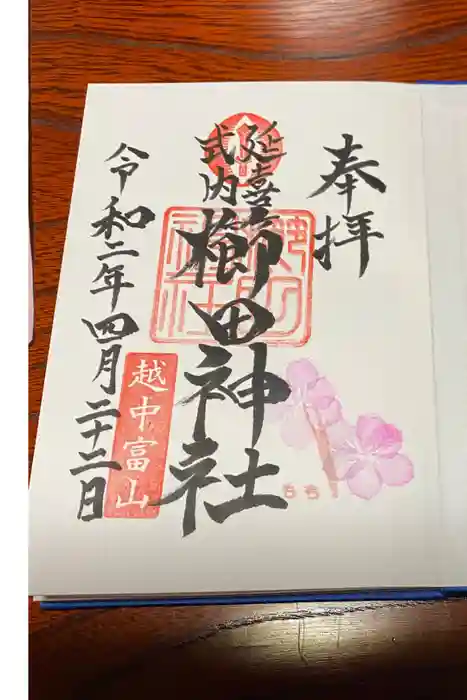 奉拝
延喜
式内
櫛田神社
越中富山
令和二年四月二十二日
もも